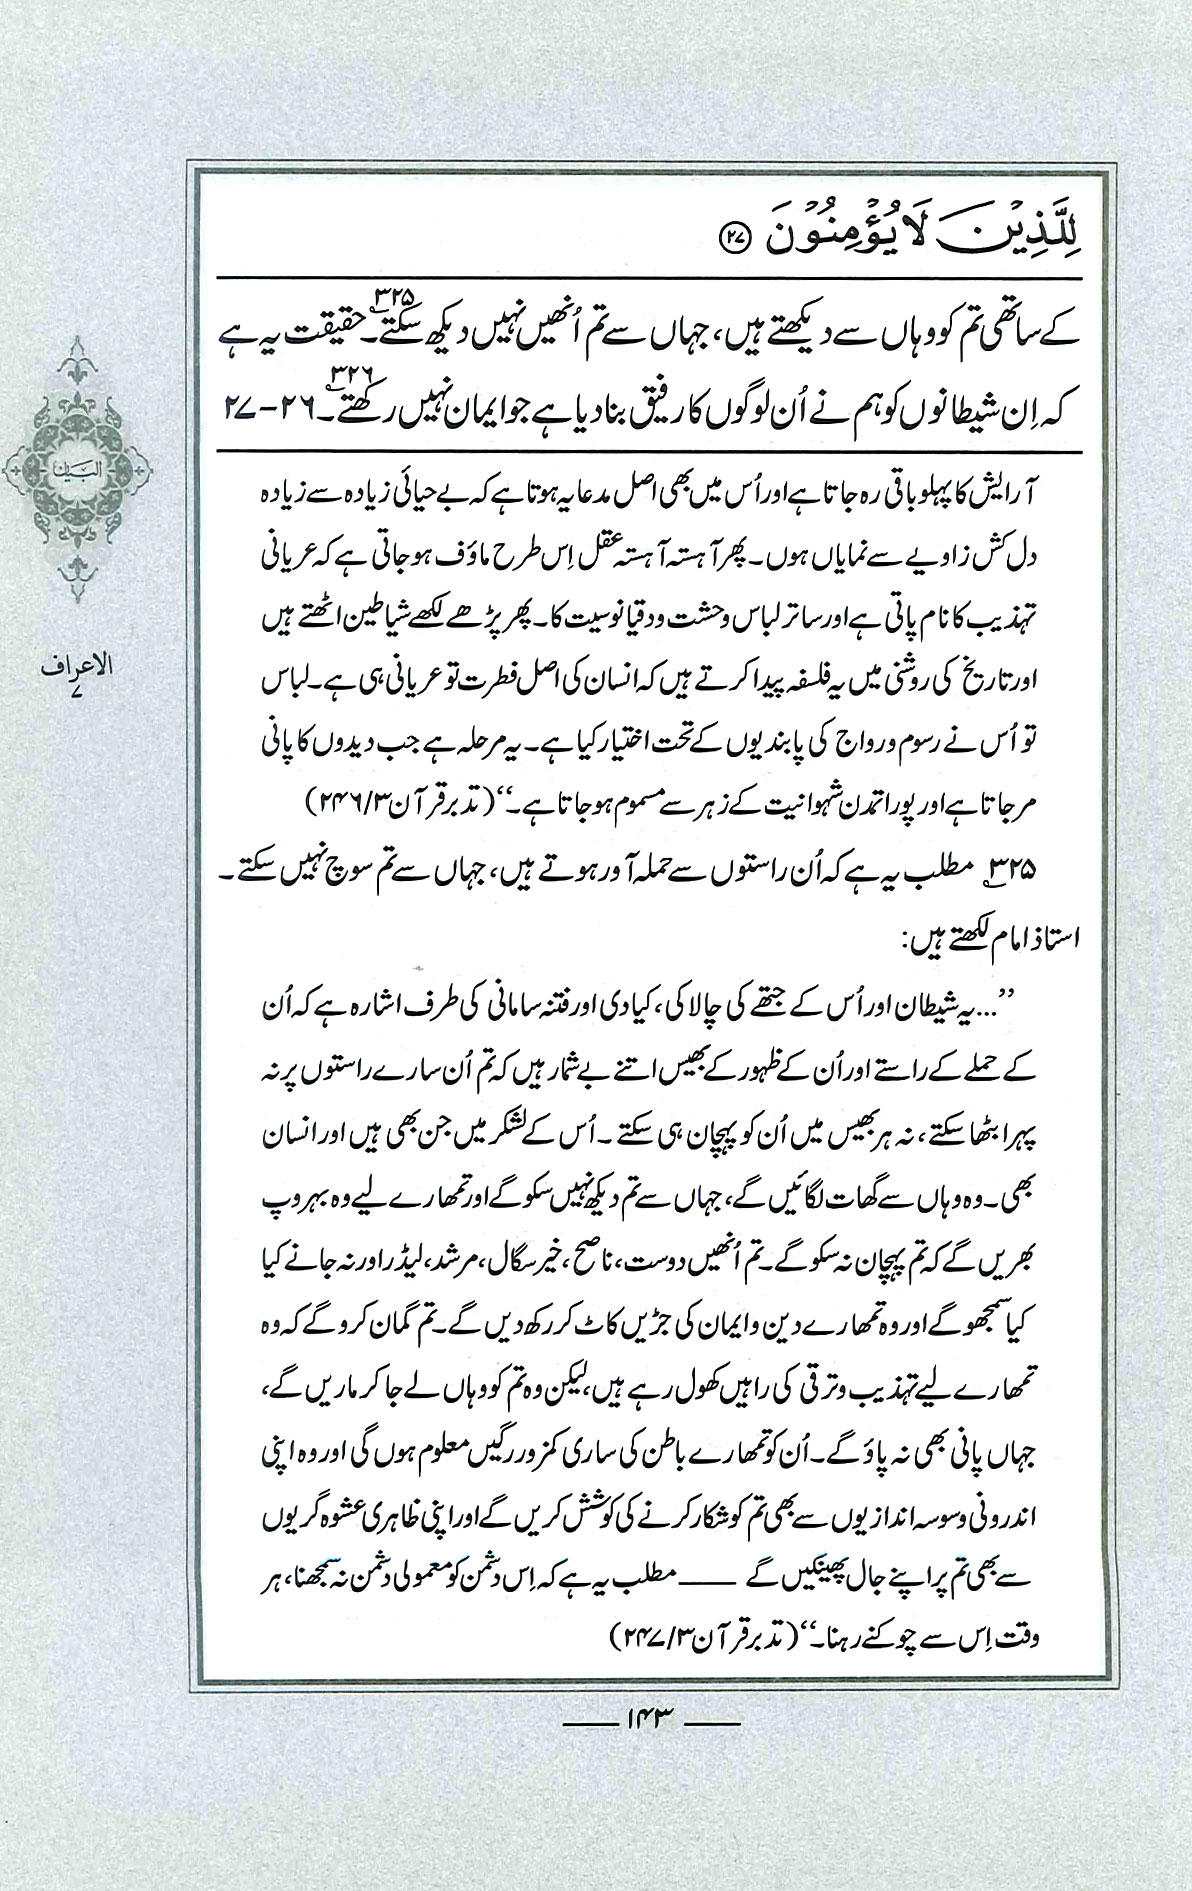 لِلَّذِيْنَ لَا يُؤْمِنُوْنَ ﴿۲۷﴾
کے ساتھی تم کو وہاں سے دیکھتے ہیں، جہاں سے تم اُنھیں نہیں دیکھ سکتے۔۳۲۵ حقیقت یہ ہے
کہ اِن شیطانوں کو ہم نے اُن لوگوں کا رفیق بنا دیا ہے جو ایمان نہیں رکھتے۔۳۲۶ ۲۶-۲۷
آرایش کا پہلو باقی رہ جاتا ہے اور اُس میں بھی اصل مدعا یہ ہوتا ہے کہ بے حیائی زیادہ سے زیادہ
دل کش زاویے سے نمایاں ہوں۔ پھر آہستہ آہستہ عقل اِس طرح ماؤف ہو جاتی ہے کہ عریانی
تہذیب کا نام پاتی ہے اور ساتر لباس وحشت و دقیانوسیت کا۔ پھر پڑھے لکھے شیاطین اٹھتے ہیں
اور تاریخ کی روشنی میں یہ فلسفہ پیدا کرتے ہیں کہ انسان کی اصل فطرت تو عریانی ہی ہے۔ لباس
تو اُس نے رسوم و رواج کی پابندیوں کے تحت اختیار کیا ہے۔ یہ مرحلہ ہے جب دیدوں کا پانی
مر جاتا ہے اور پورا تمدن شہوانیت کے زہر سے مسموم ہو جاتا ہے۔‘‘ (تدبر قرآن ۳/ ۲۴۶)
۳۲۵ مطلب یہ ہے کہ اُن راستوں سے حملہ آور ہوتے ہیں، جہاں سے تم سوچ نہیں سکتے۔
استاذ امام لکھتے ہیں:
’’...یہ شیطان اور اُس کے جتھے کی چالاکی، کیادی اور فتنہ سامانی کی طرف اشارہ ہے کہ اُن
کے حملے کے راستے اور اُن کے ظہور کے بھیس اتنے بے شمار ہیں کہ تم اُن سارے راستوں پر نہ
پہرا بٹھا سکتے، نہ ہر بھیس میں اُن کو پہچان ہی سکتے۔ اُس کے لشکر میں جن بھی ہیں اور انسان
بھی۔ وہ وہاں سے گھات لگائیں گے، جہاں سے تم دیکھ نہیں سکو گے اور تمھارے لیے وہ بہروپ
بھریں گے کہ تم پہچان نہ سکو گے۔ تم اُنھیں دوست، ناصح، خیر سگال، مرشد، لیڈر اور نہ جانے کیا
کیا سمجھو گے اور وہ تمھارے دین و ایمان کی جڑیں کاٹ کر رکھ دیں گے۔ تم گمان کرو گے کہ وہ
تمھارے لیے تہذیب و ترقی کی راہیں کھول رہے ہیں، لیکن وہ تم کو وہاں لے جا کر ماریں گے،
جہاں پانی بھی نہ پاؤ گے۔ اُن کو تمھارے باطن کی ساری کمزور رگیں معلوم ہوں گی اور وہ اپنی
اندرونی وسوسہ اندازیوں سے بھی تم کو شکار کرنے کی کوشش کریں گے اور اپنی ظاہری عشوہ گریوں
سے بھی تم پر اپنے جال پھینکیں گے —— مطلب یہ ہے کہ اِس دشمن کو معمولی دشمن نہ سمجھنا، ہر
وقت اِس سے چوکنے رہنا۔‘‘ (تدبر قرآن ۳/ ۲۴۷)
البیان
الاعراف
۷
—— ۱۴۳ ——